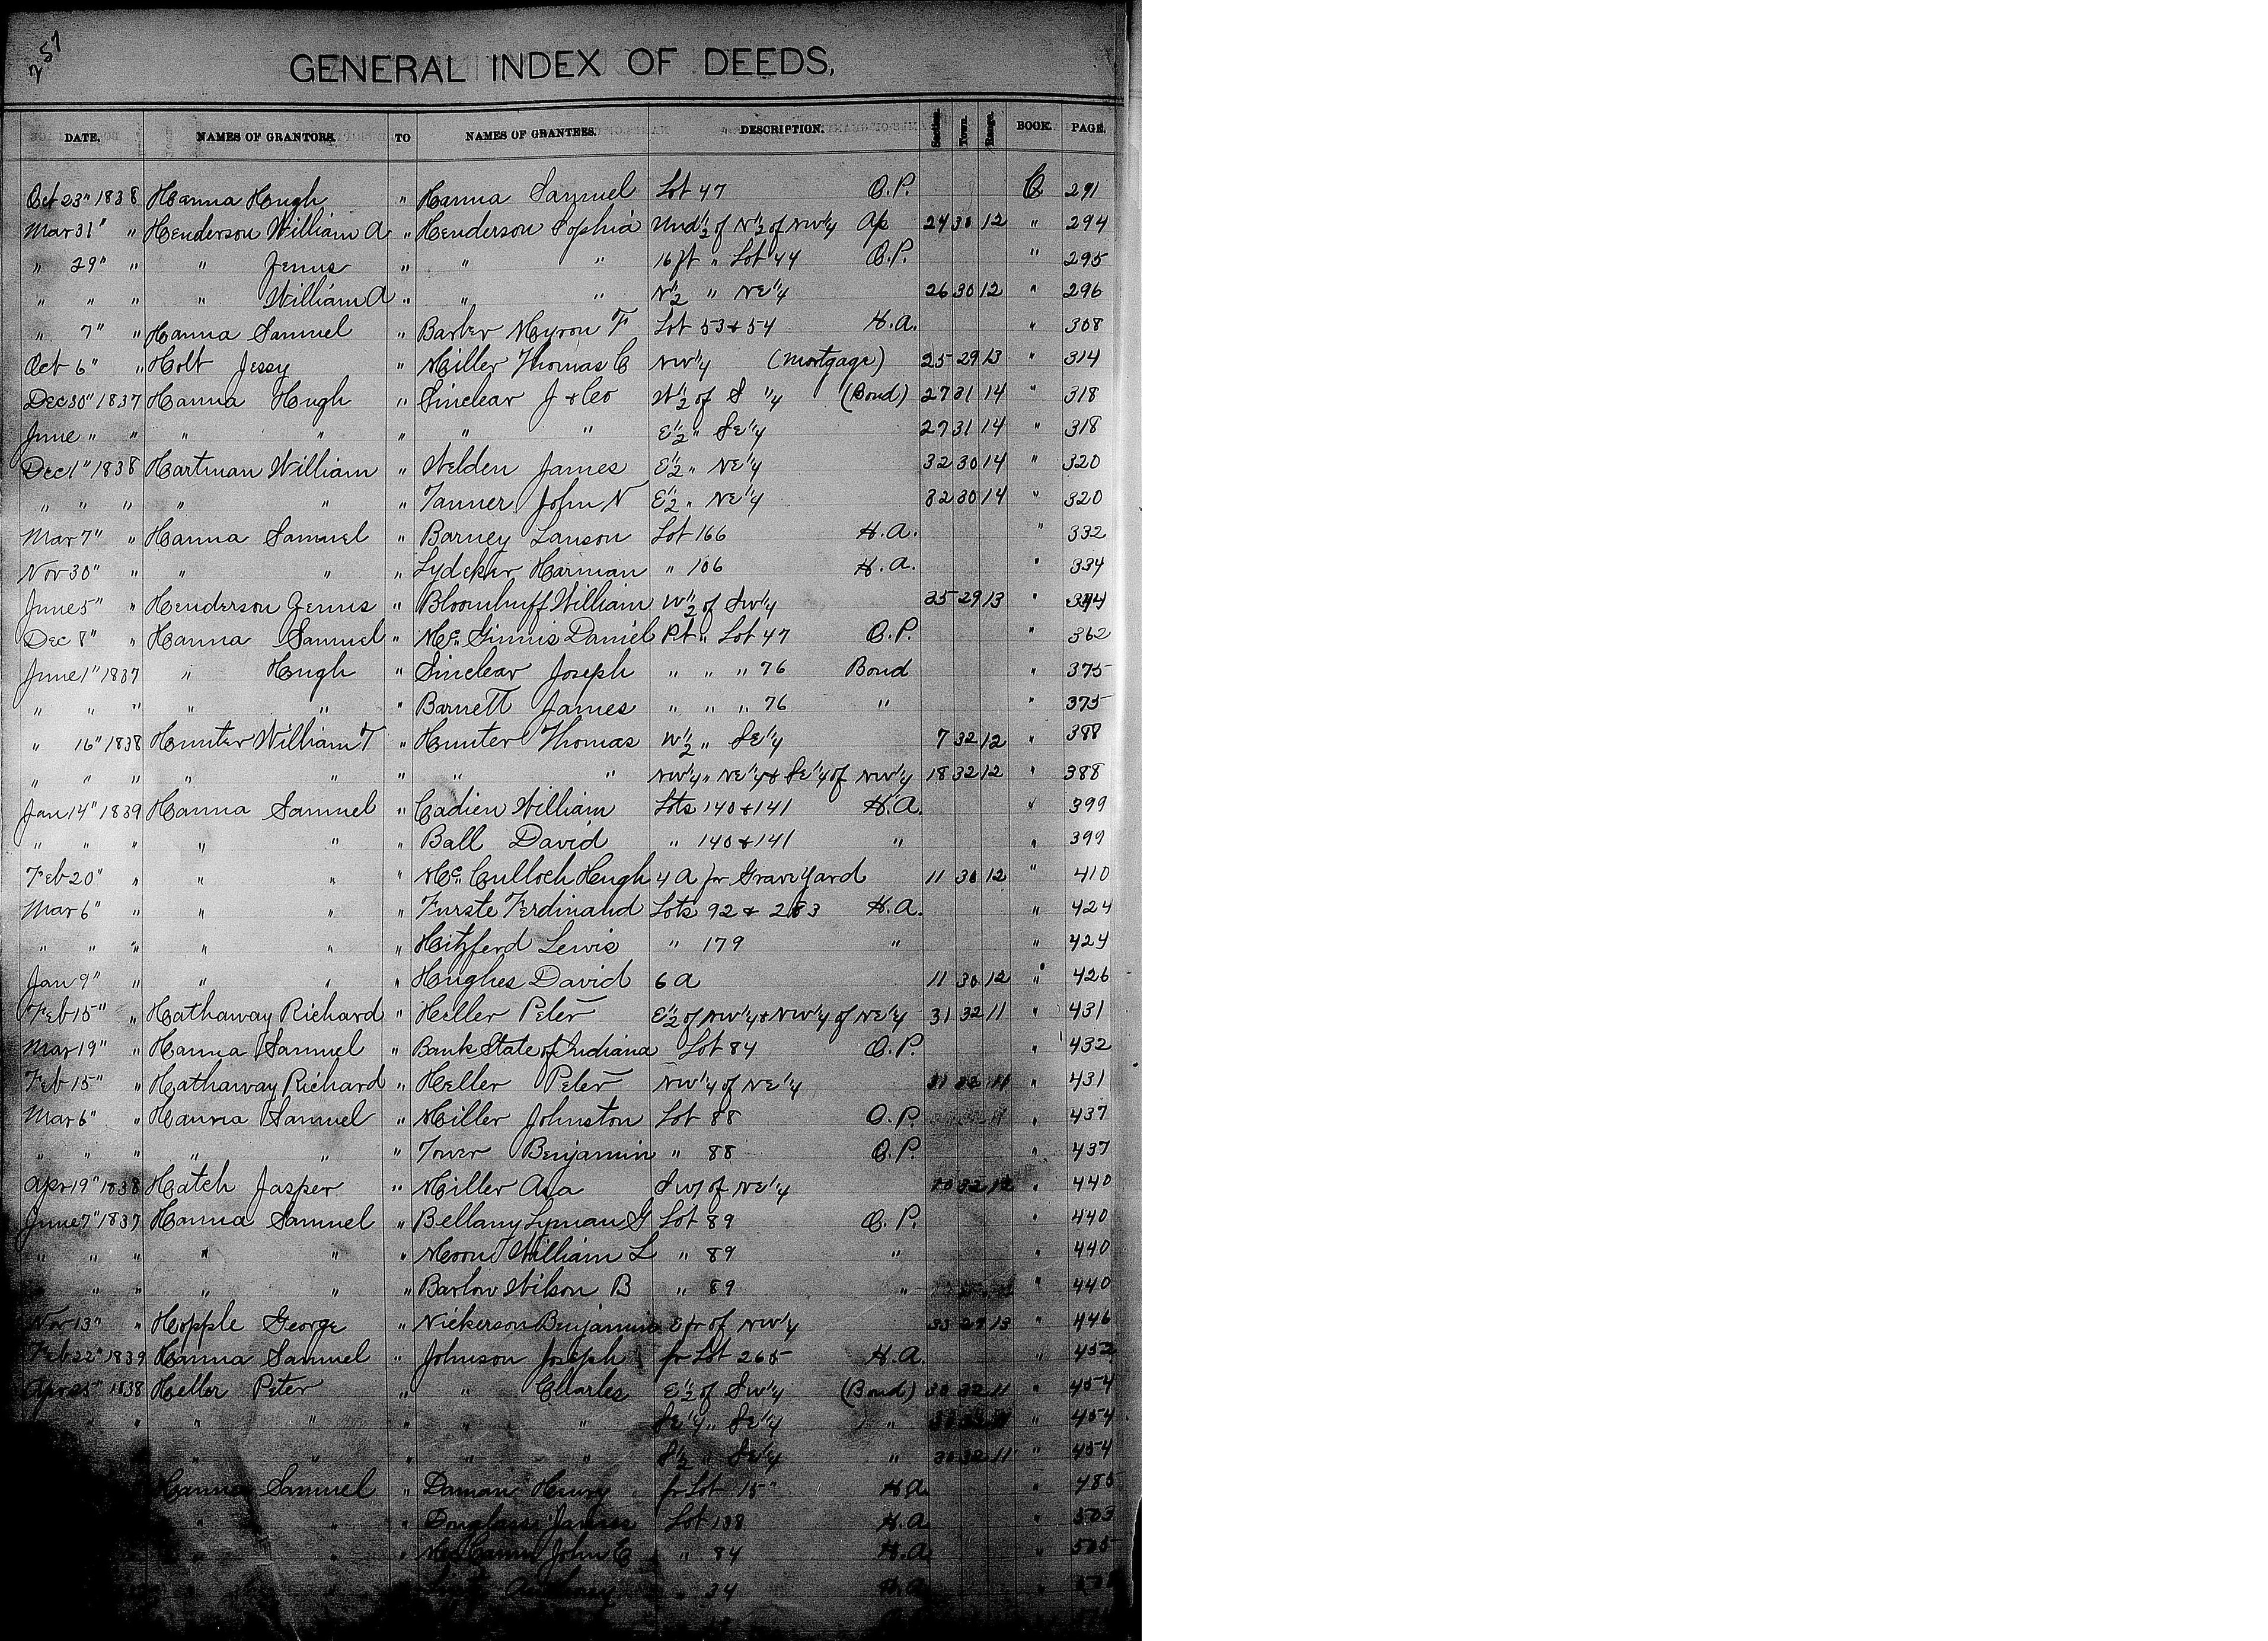 257
GENERAL INDEX OF DEEDS.
DATE. NAMES OF GRANTORS. TO NAMES OF GRANTEES. DESCRIPTION. Section. Town. Range. BOOK. PAGE.
Oct 23" 1838 Hanna Hugh " Hanna Samuel Lot 47 O.P. C 291
Mar 31" " Henderson William A " Henderson Sophia Und 1/2 of N 1/2 of NW 1/4 Ap 24 30 12 " 294
" 29" " " Zenus " " " 16 ft " Lot 44 O.P. " 295
" " " " William A " " " N 1/2 " NE 1/4 26 30 12 " 296
" 7" " Hanna Samuel " Barber Myron F Lot 53 & 54 H.A. " 308
Oct 6" " Holt Jessy " Miller Thomas C NW 1/4 (Mortgage) 25 29 13 " 314
Dec 30" 1837 Hanna Hugh " Sinclear J & Co W 1/2 of S " 1/4 (Bond) 27 31 14 " 318
June " " " " " " " E 1/2 " SE 1/4 27 31 14 " 318
Dec 1" 1838 Hartman William " Welden James E 1/2 " NE 1/4 32 30 14 " 320
" " " " " " Tanner John N E 1/2 " NE 1/4 32 30 14 " 320
Mar 7" " Hanna Samuel " Barney Lanson Lot 166 H.A. " 332
Nov 30" " " " " Lydeker Harman " 106 H.A. " 334
June 5" " Henderson Zenus " Bloomhuff William W 1/2 of SW 1/4 35 29 13 " 344
Dec 8" " Hanna Samuel " Mc Ginnis Daniel Pt " Lot 47 O.P. " 362
June 1" 1837 " Hugh " Sinclear Joseph " " " 76 Bond " 375
" " " " " " Barnett James " " " 76 " " 375
" 16" 1838 Hunter William T " Hunter Thomas W 1/2 " SE 1/4 7 32 12 " 388
" " " " " " " " NW 1/4 " NE 1/4 & SE 1/4 of NW 1/4 18 32 12 " 388
Jan 14" 1839 Hanna Samuel " Cadien William Lots 140 & 141 H.A. " 399
" " " " " " Ball David " 140 & 141 " " 399
Feb 20" " " " " Mc Culloch Hugh 4 A for Grave Yard 11 30 12 " 410
Mar 6" " " " " Furste Ferdinand Lots 92 & 283 H.A. " 424
" " " " " " Hitzferd Lewis " 179 " " 424
Jan 9" " " " " Hughes David 6 A 11 30 12 " 426
Feb 15" " Hathaway Richard " Heller Peter E 1/2 of NW 1/4 & NW 1/4 of NE 1/4 31 32 11 " 431
Mar 19" " Hanna Samuel " Bank State of Indiana Lot 84 O.P. " 432
Feb 15" " Hathaway Richard " Heller Peter NW 1/4 of NE 1/4 31 32 11 " 431
Mar 6" " Hanna Samuel " Miller Johnston Lot 88 O.P. " 437
" " " " " " Tower Benjamin " 88 O.P. " 437
Apr 19" 1838 Hatch Jasper " Miller Asa SW of NE 1/4 32 12 " 440
June 7" 1837 Hanna Samuel " Bellamy Lyman G Lot 89 O.P. " 440
" " " " " " Moon William L " 89 " " 440
" " " " " Barlow Wilson B " 89 " " 440
Nov 13" " Hopple George " Nickerson Benjamin E fr of NW 1/4 33 29 13 " 446
Feb 22" 1839 Hanna Samuel " Johnson Joseph fr Lot 265 H.A. " 452
Apr 25" 1838 Heller Peter " " Charles E 1/2 of SW 1/4 (Bond) 30 32 11 " 454
" " " " " " " SE 1/4 " SE 1/4 " " 454
" " " " " " S 1/2 " SE 1/4 " 30 32 11 " 454
Hanna Samuel " Daman Henry fr Lot 15 H.A. " 485
" " " Douglass James Lot 138 H.A. " 503
" " " John C " 84 H.A. " 505
" Anthony " 34 H.A. "